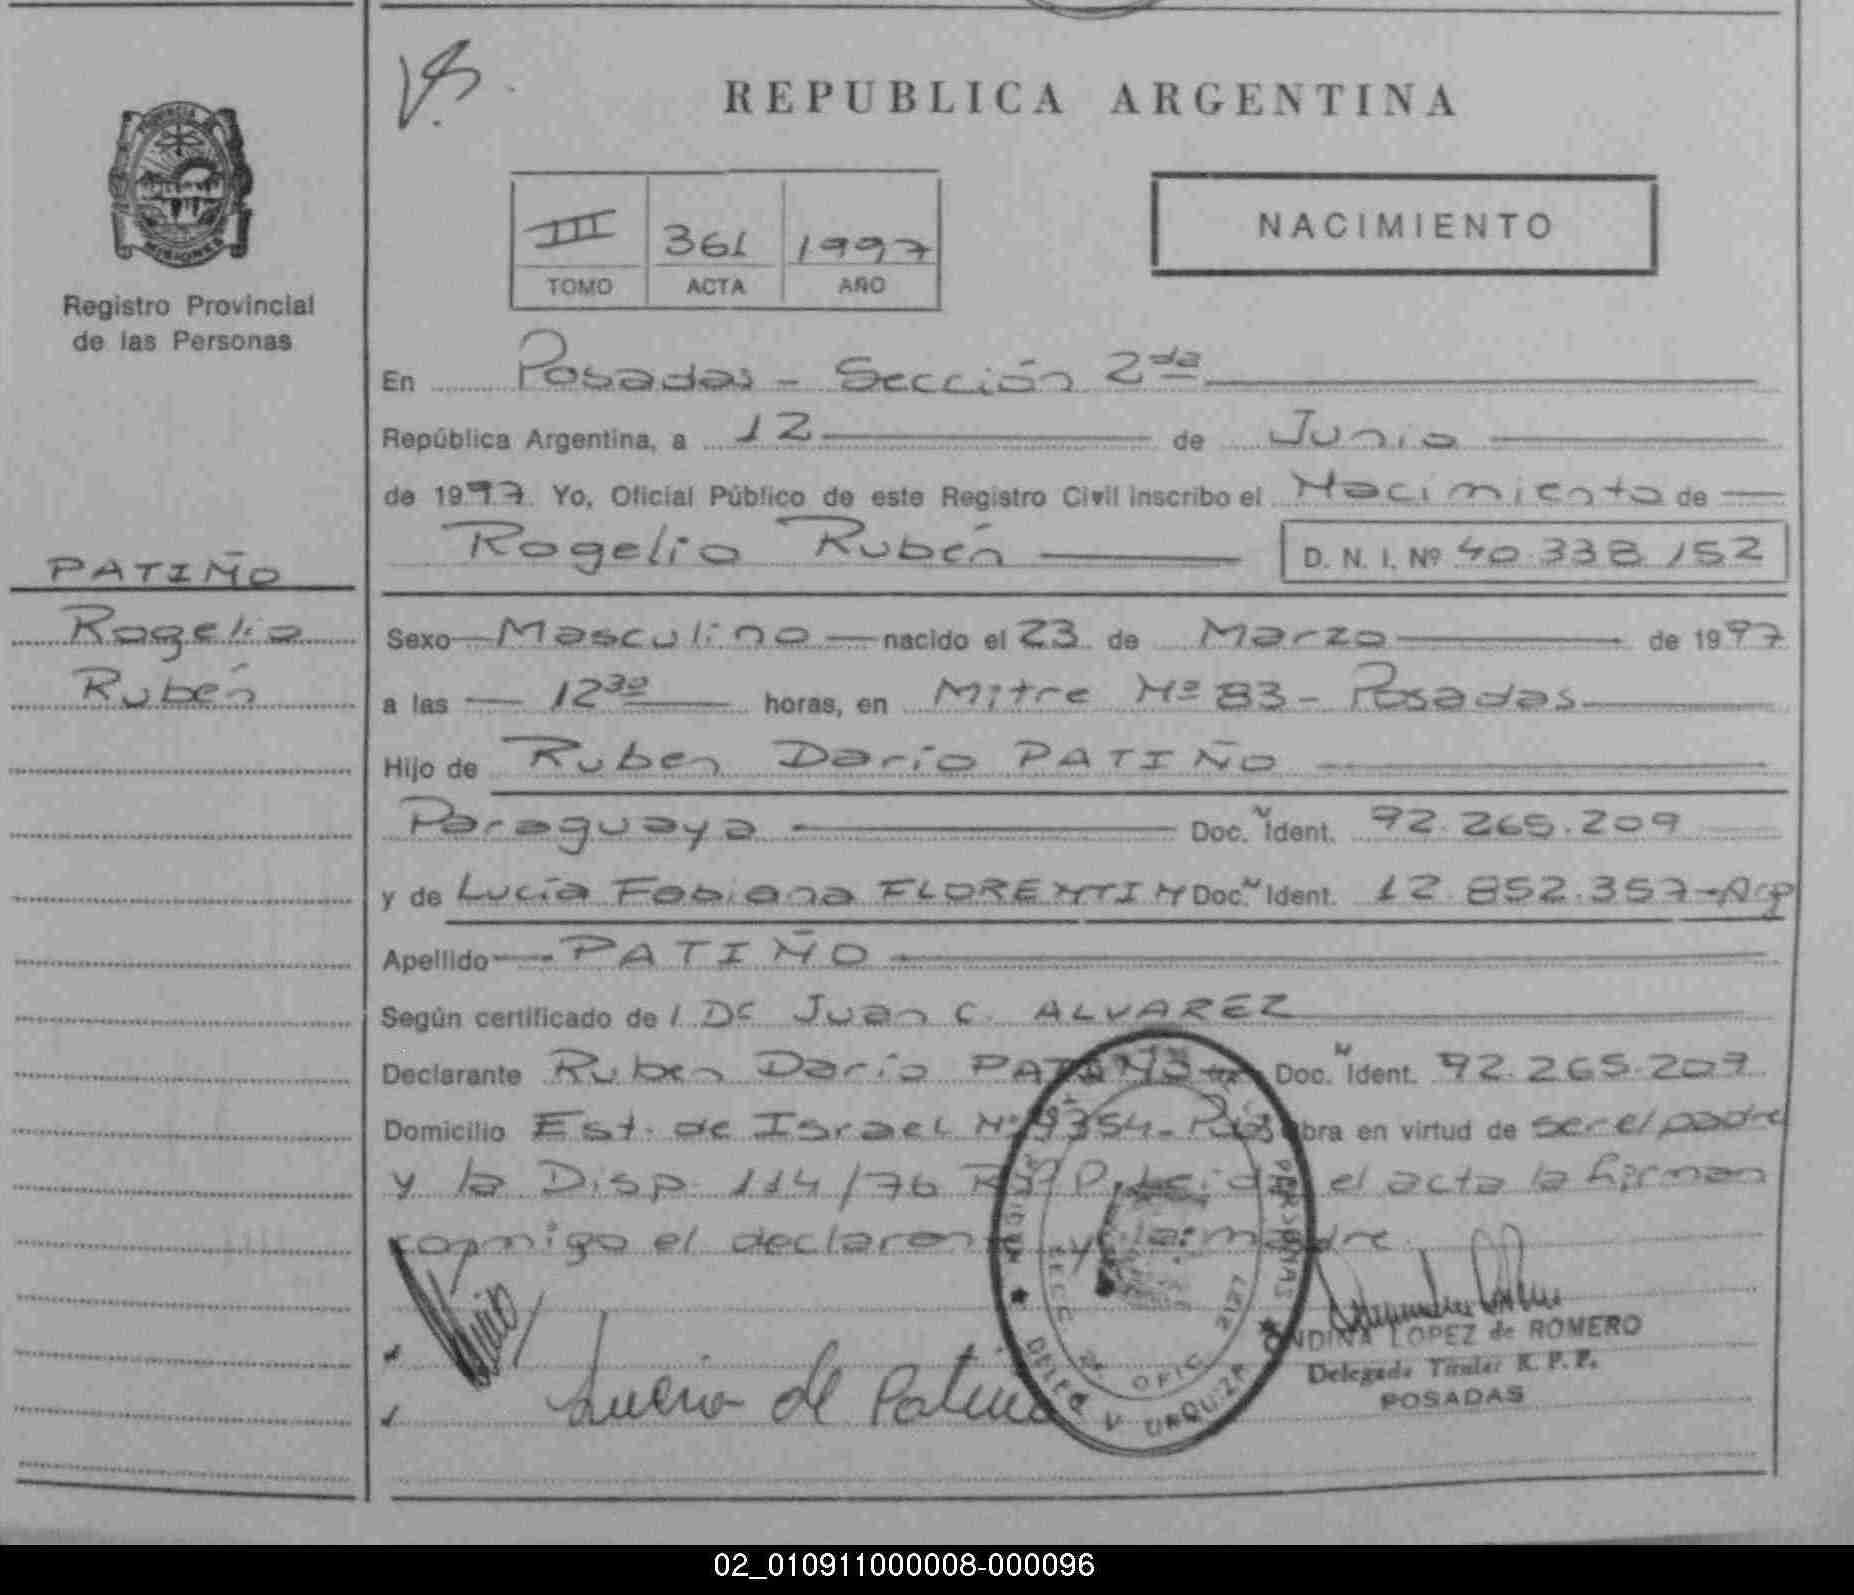 REPUBLICA ARGENTINA
PROVINCIA
MISIONES
Registro Provincial
de las Personas
III 361 1997
TOMO ACTA AÑO
NACIMIENTO
En Posadas - Sección 2da
República Argentina, a 12 de Junio
de 1997 Yo, Oficial Público de este Registro Civil inscribo el Nacimiento de
Rogelio Rubén D. N. I. Nº 40.338.152
PATIÑO
Rogelio
Rubén
Sexo Masculino nacido el 23 de Marzo de 1997
a las 12 30 horas, en Mitre Nº 83 - Posadas
Hijo de Ruben Darío PATIÑO
Paraguaya Doc. Ident. 92.265.209
y de Lucía Fabiana FLORENTIN Doc. Ident. 12.852.357-Arg
Apellido PATIÑO
Según certificado de l Dr Juan C. ALVAREZ
Declarante Ruben Darío PATIÑO Doc. Ident. 92.265.209
Domicilio Est. de Israel Nº 9354- Pdas obra en virtud de ser el padre
y la Disp. 114/76 RPP. Leida el acta la firman
conmigo el declarante y la madre.
Lucia de Patiño
ONDINA LOPEZ de ROMERO
Delegada Titular R. P. P.
POSADAS
PERSONAS
SECC. 2a OFIC. 2127
DELEG. V. URQUIZA
02_010911000008-000096